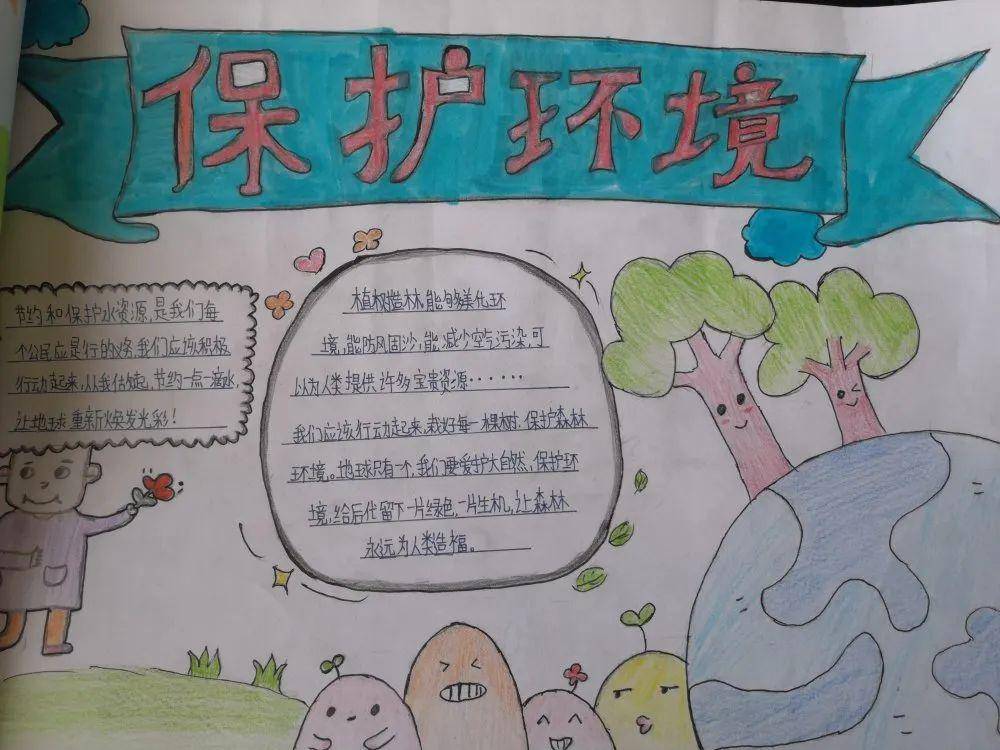 保护环境
节约和保护水资源,是我们每
个公民应是行的义务,我们应该积极
行动起来,从我做起,节约一点一滴水,
让地球重新焕发光彩!
植树造林,能够美化环
境,能防风固沙,能减少空气污染,可
以为人类提供许多宝贵资源······
我们应该行动起来,栽好每一棵树,保护森林
环境。地球只有一个,我们要爱护大自然,保护环
境,给后代留下一片绿色,一片生机,让森林
永远为人类造福。